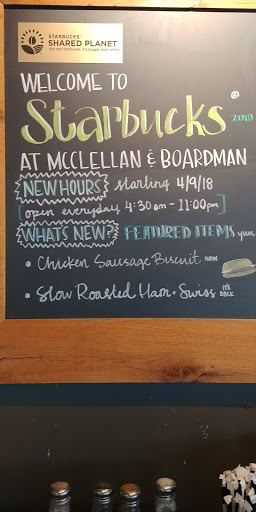 STARBUCKS™
SHARED PLANET
You and Starbucks. It's bigger than coffee.
WELCOME TO
Starbucks
2018
AT MCCLELLAN & BOARDMAN
NEW HOURS starting 4/9/18
[open everyday 4:30am - 11:00pm]
WHATS NEW? FEATURED ITEMS yum
• Chicken Sausage Biscuit NEW
• Slow Roasted Ham + Swiss IT'S
BACK